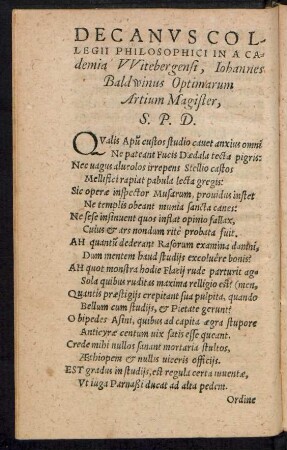 DECANVS COL-
LEGII PHILOSOPHICI IN ACA-
demia VVitebergensi, Iohannes
Baldwinus Optimarum
Artium Magister,
S. P. D.
QValis Apũ custos studio cavet anxius omni
Ne pateant Fucis Dædala tecta pigris:
Nec vagus alveolos irrepens Stellio castos
Mellifici rapiat pabula lecta gregis:
Sic operæ inspector Musarum, providus instet
Ne templis obeant munia sancta canes:
Ne sese insinuent quos inflat opinio fallax,
Cuius & ars nondum ritè probata fuit.
AH quantũ dederant Rasorum examina damni,
Dum mentem haud studijs excoluêre bonis!
AH quot monstra hodie Flacij rude parturit ag-
Sola quibus ruditas maxima relligio est! (men,
Quantis præstigijs erepitant sua pulpita, quando
Bellum cum studijs, & Pietate gerunt!
O bipedes Asini, quibus ad capita ægra stupore
Anticyræ centum vix satis esse queant.
Crede mihi nullos sanant mortaria stultos,
Æthiopem & nullis viceris officijs.
EST gradus in studijs, est regula certa iuventæ,
Vt iuga Parnassi ducat ad alta pedem.
Ordine